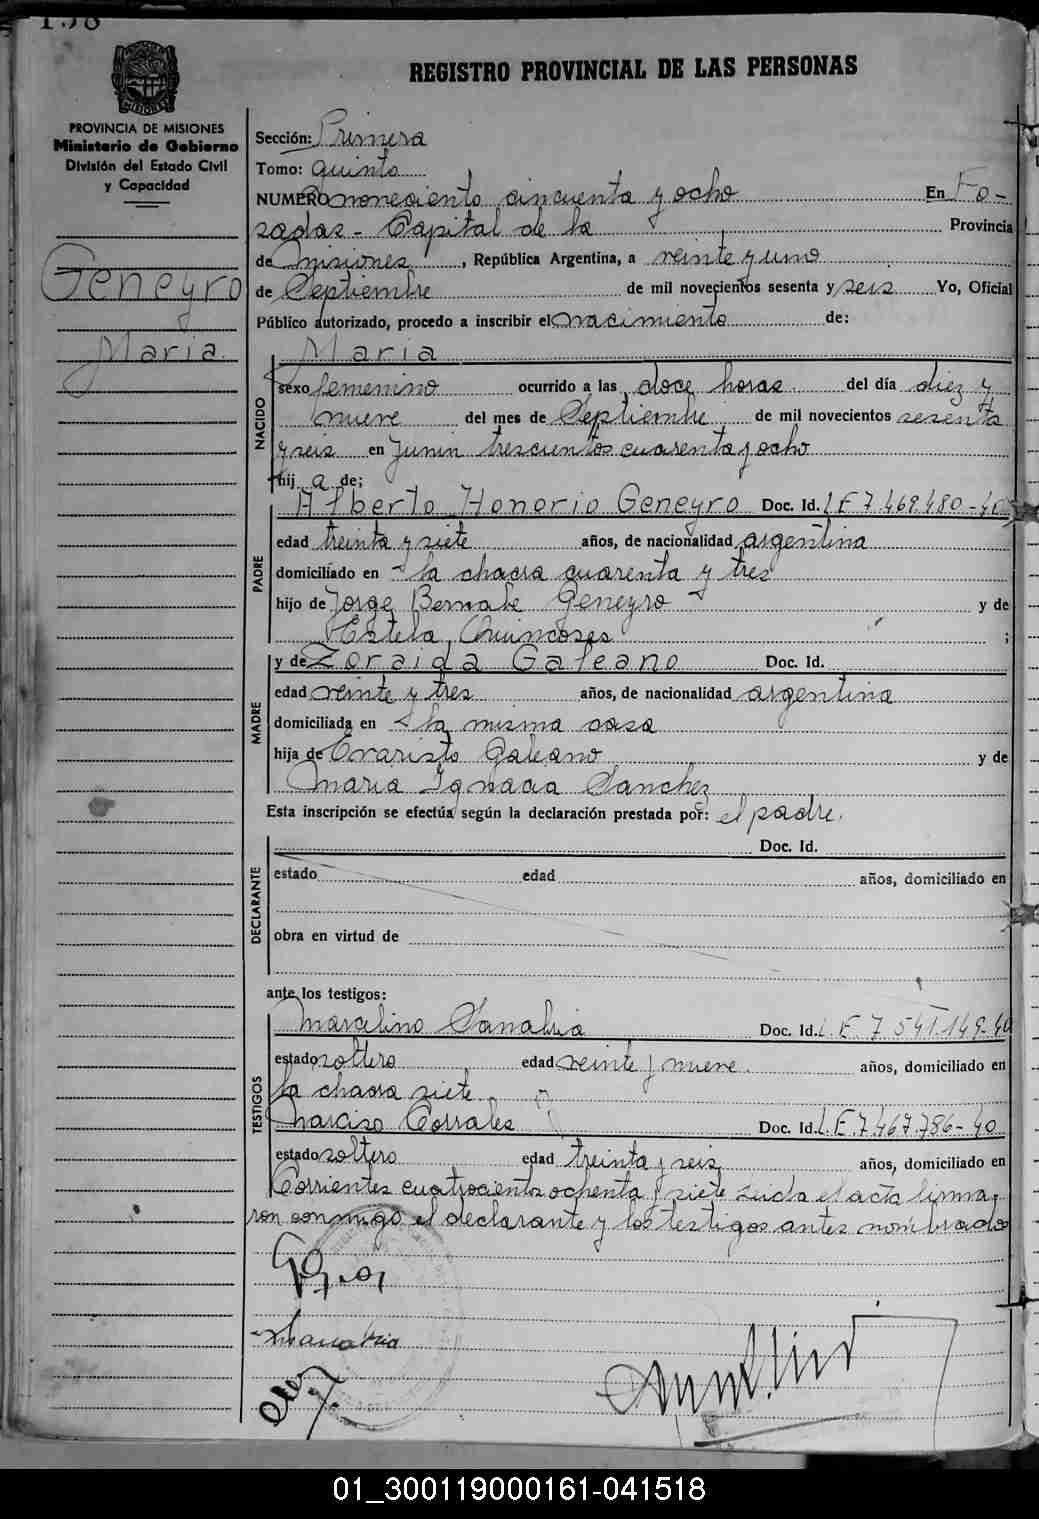 158
PROVINCIA DE MISIONES
Ministerio de Gobierno
División del Estado Civil
y Capacidad
Geneyro
Maria
REGISTRO PROVINCIAL DE LAS PERSONAS
Sección: Primera
Tomo: quinto
NUMERO novecientos cincuenta y ocho En Po-
sadas - Capital de la Provincia
de Misiones, República Argentina, a veinte y uno
de Septiembre de mil novecientos sesenta y seis Yo, Oficial
Público autorizado, procedo a inscribir el nacimiento de:
NACIDO
Maria
sexo femenino ocurrido a las doce horas del día diez y
nueve del mes de Septiembre de mil novecientos sesenta
y seis en Junin trescientos cuarenta y ocho
hij a de;
PADRE
Alberto Honorio Geneyro Doc. Id. L E 7.469.480-40
edad treinta y siete años, de nacionalidad argentina
domiciliado en la chacra cuarenta y tres
hijo de Jorge Bernabe Geneyro y de
Estela Quincoses ;
MADRE
y de Zoraida Galeano Doc. Id.
edad veinte y tres años, de nacionalidad argentina
domiciliada en la misma casa
hija de Evaristo Galeano y de
Maria Ignacia Sanchez
Esta inscripción se efectúa según la declaración prestada por: el padre.
DECLARANTE
Doc. Id.
estado edad años, domiciliado en
obra en virtud de
ante los testigos:
TESTIGOS
Marcelino Sanabria Doc. Id. L.E. 7 541.149-40
estado soltero edad veinte y nueve años, domiciliado en
la chacra siete
Narciso Corrales Doc. Id. L.E. 7.467.786-40
estado soltero edad treinta y seis años, domiciliado en
Corrientes cuatrocientos ochenta y siete Leida el acta firma-
ron conmigo el declarante y los testigos antes nombrados
Sanabria
01_300119000161-041518